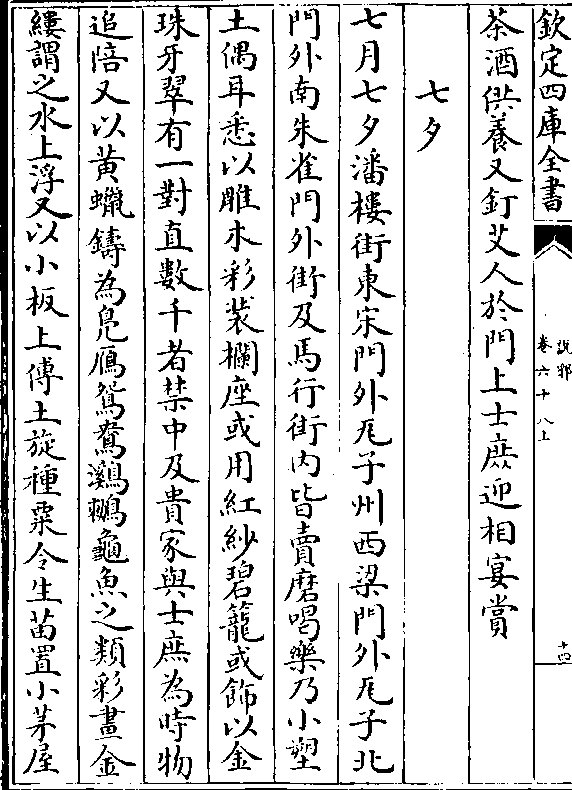 欽定四庫全書
說郛
卷六十八上
十四
茶酒供養又釘艾人於門上士庶迎相宴賞
七夕
七月七夕潘樓街東宋門外瓦子州西梁門外瓦子北
門外南朱雀門外街及馬行街內皆賣磨喝樂乃小塑
土偶耳悉以雕木彩裝欄座或用紅紗碧籠或飾以金
珠牙翠有一對直數千者禁中及貴家與士庶為時物
追陪又以黃蠟鑄為鳧鴈鴛鴦鸂鶒龜魚之類彩畫金
縷謂之水上浮又以小板上傅土旋種粟令生苗置小茅屋